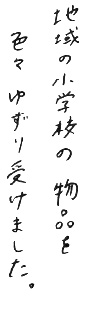 地域の小学校の物品を
色々ゆずり受けました。